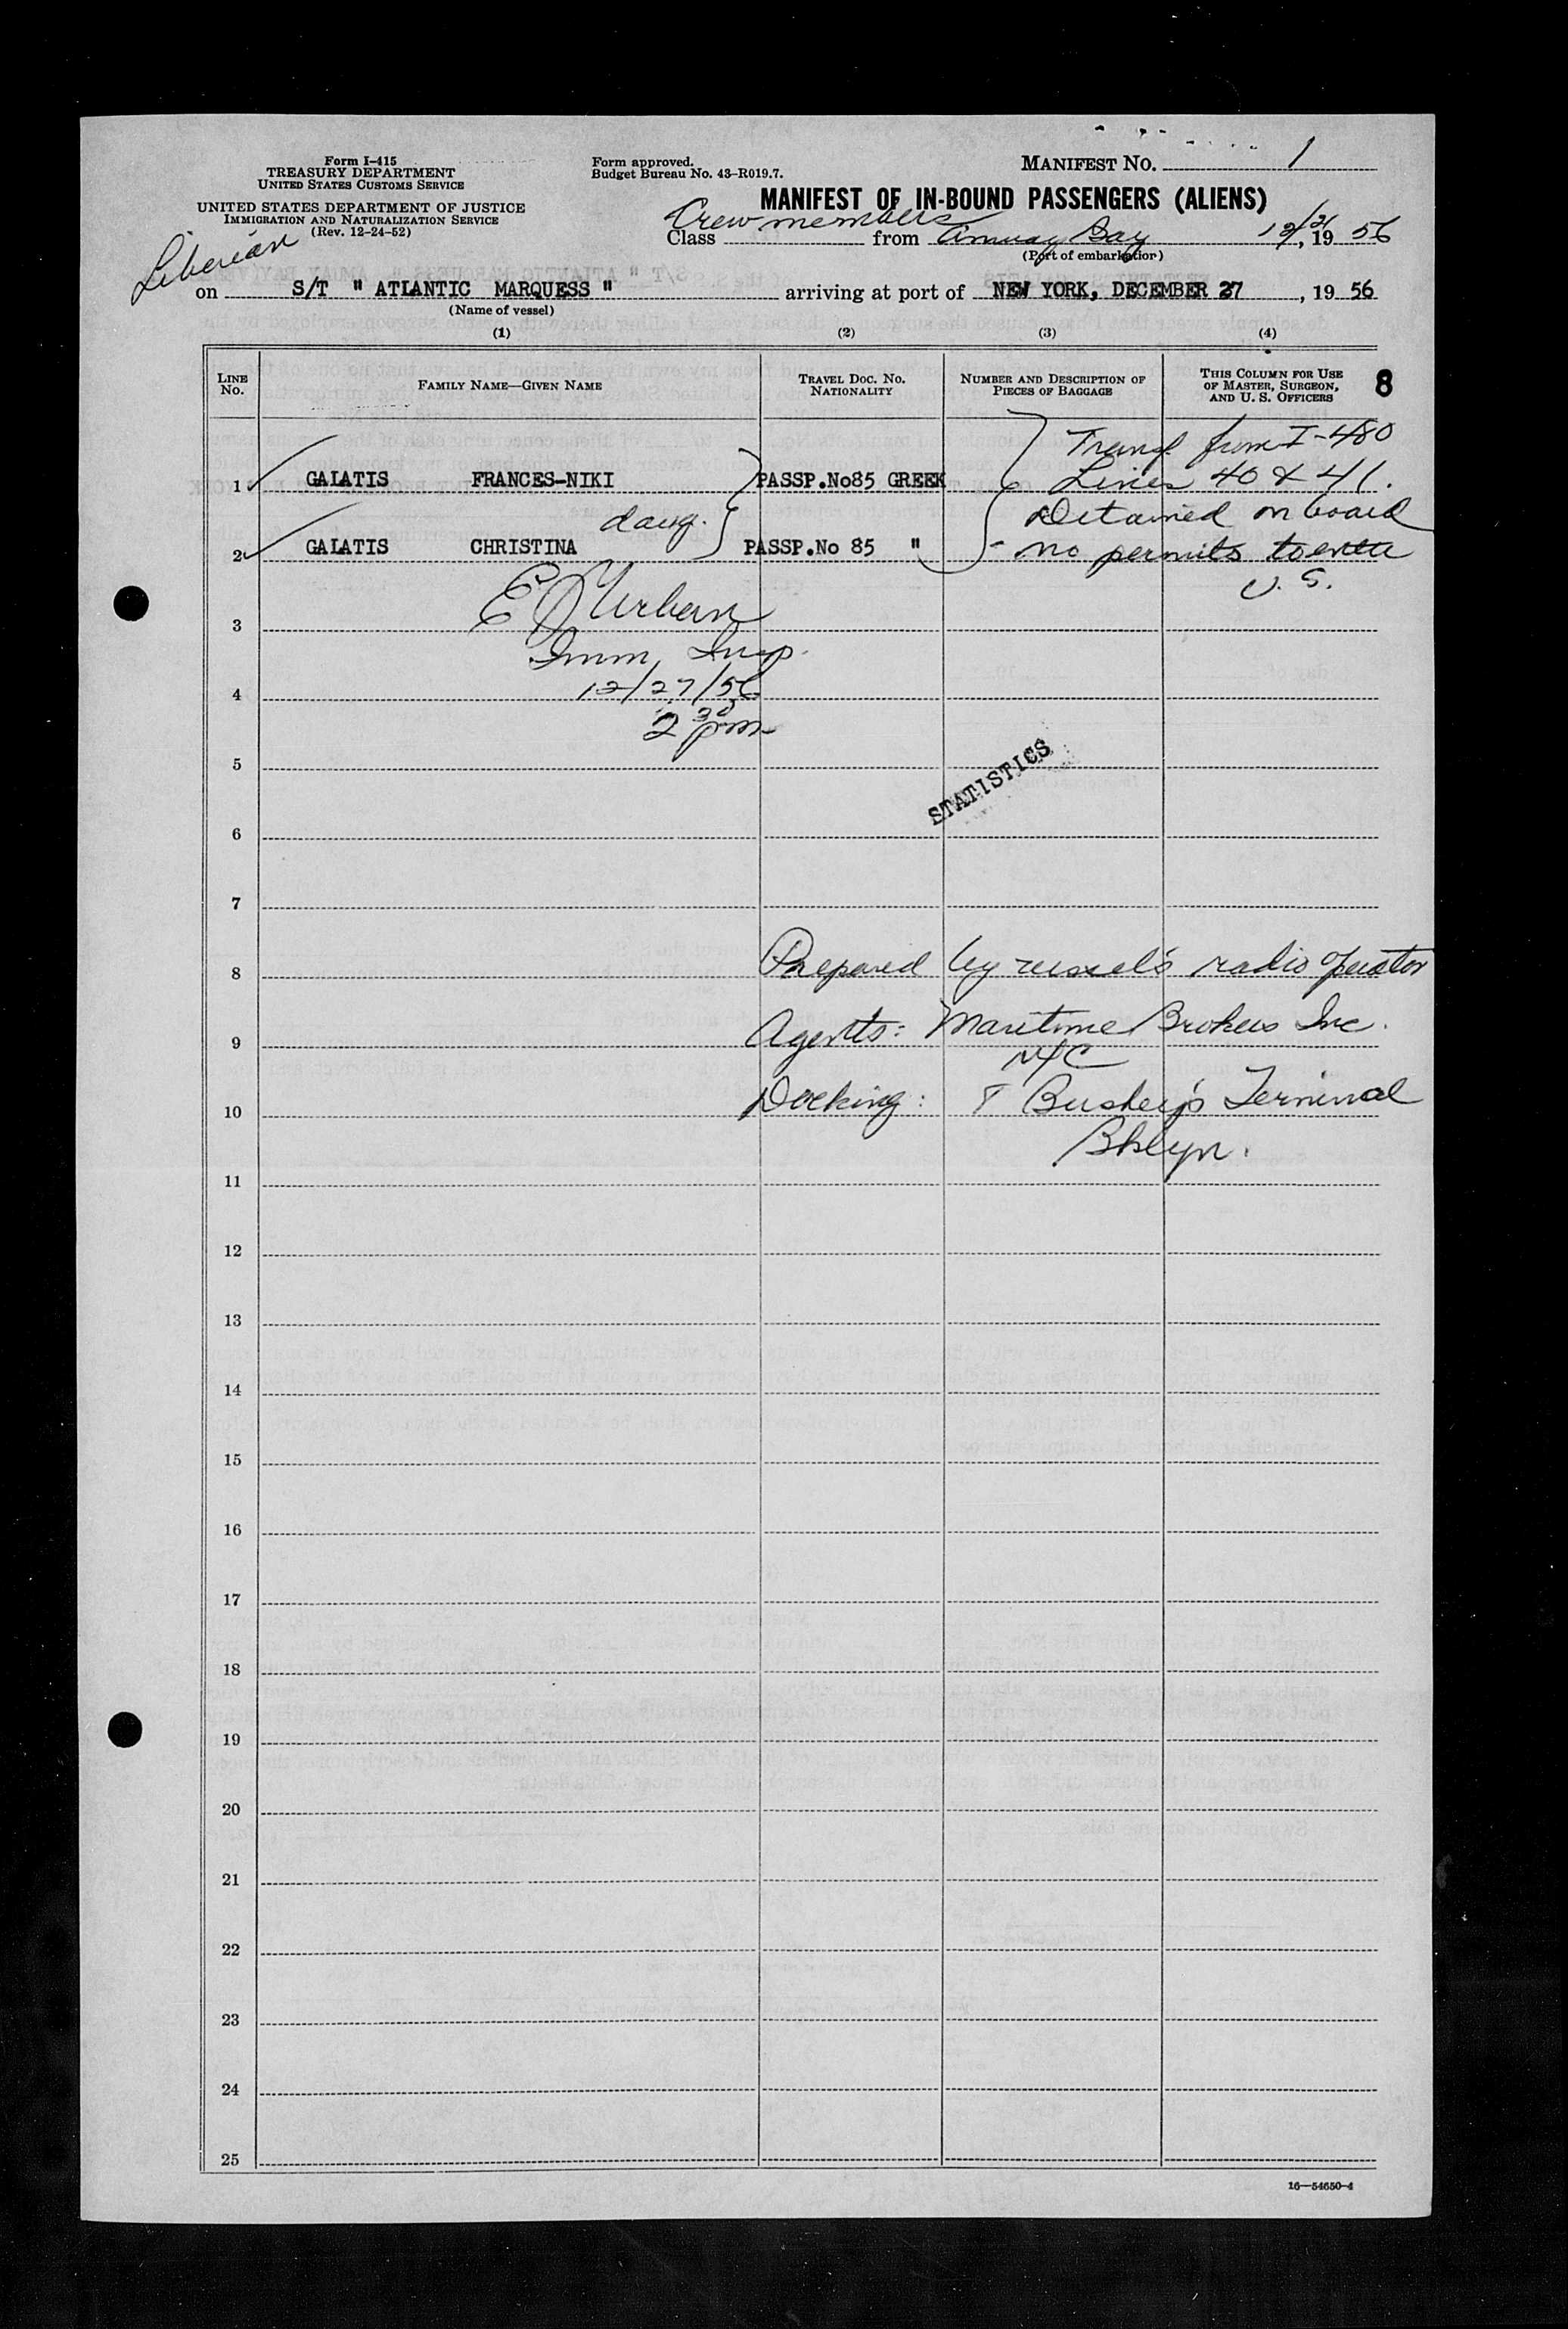 Form I-415
TREASURY DEPARTMENT
UNITED STATES CUSTOMS SERVICE
UNITED STATES DEPARTMENT OF JUSTICE
IMMIGRATION AND NATURALIZATION SERVICE
(Rev. 12-24-52)
Form approved.
Budget Bureau No. 43-R019.7.
MANIFEST NO. 1
MANIFEST OF IN-BOUND PASSENGERS (ALIENS)
Liberian
Class Crew members from Amuay Bay 12/21, 19 56
(Port of embarkation)
on S/T " ATLANTIC MARQUESS " arriving at port of NEW YORK, DECEMBER 27, 19 56
(Name of vessel)
(1) (2) (3) (4)
LINE NO. FAMILY NAME—GIVEN NAME TRAVEL DOC. NO. NATIONALITY NUMBER AND DESCRIPTION OF PIECES OF BAGGAGE THIS COLUMN FOR USE OF MASTER, SURGEON, AND U. S. OFFICERS 8
Transf from I-480
1 GALATIS FRANCES-NIKI PASSP.No85 GREEK Lines 40 & 41.
daug. Detained on board
2 GALATIS CHRISTINA PASSP.No 85 " - no permits to enter
U. S.
3 E J Urban
Imm. Insp.
4 12/27/56
2 30 pm
5
STATISTICS
6
7
8 Prepared by vessel's radio operator
9 Agents: Maritime Brokers Inc.
NYC
10 Docking: Bushey's Terminal
Bklyn.
11
12
13
14
15
16
17
18
19
20
21
22
23
24
25
16—54650-4